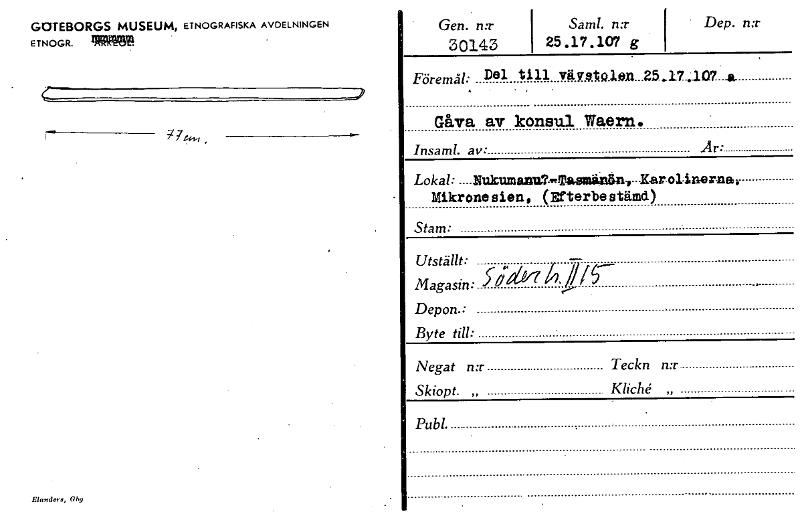 GÖTEBORGS MUSEUM, ETNOGRAFISKA AVDELNINGEN
ETNOGR. ARKEOL.
77 cm.
Elanders, Gbg
Gen. n:r Saml. n:r Dep. n:r
30143 25.17.107 g
Föremål: Del till vävstolen 25.17.107 a
Gåva av konsul Waern.
Insaml. av: År:
Lokal: Nukumanu?-Tasmanön, Karolinerna,
Mikronesien, (Efterbestämd)
Stam:
Utställt:
Magasin: Söderh. II 15
Depon.:
Byte till:
Negat n:r Teckn n:r
Skiopt. „ Kliché „
Publ.